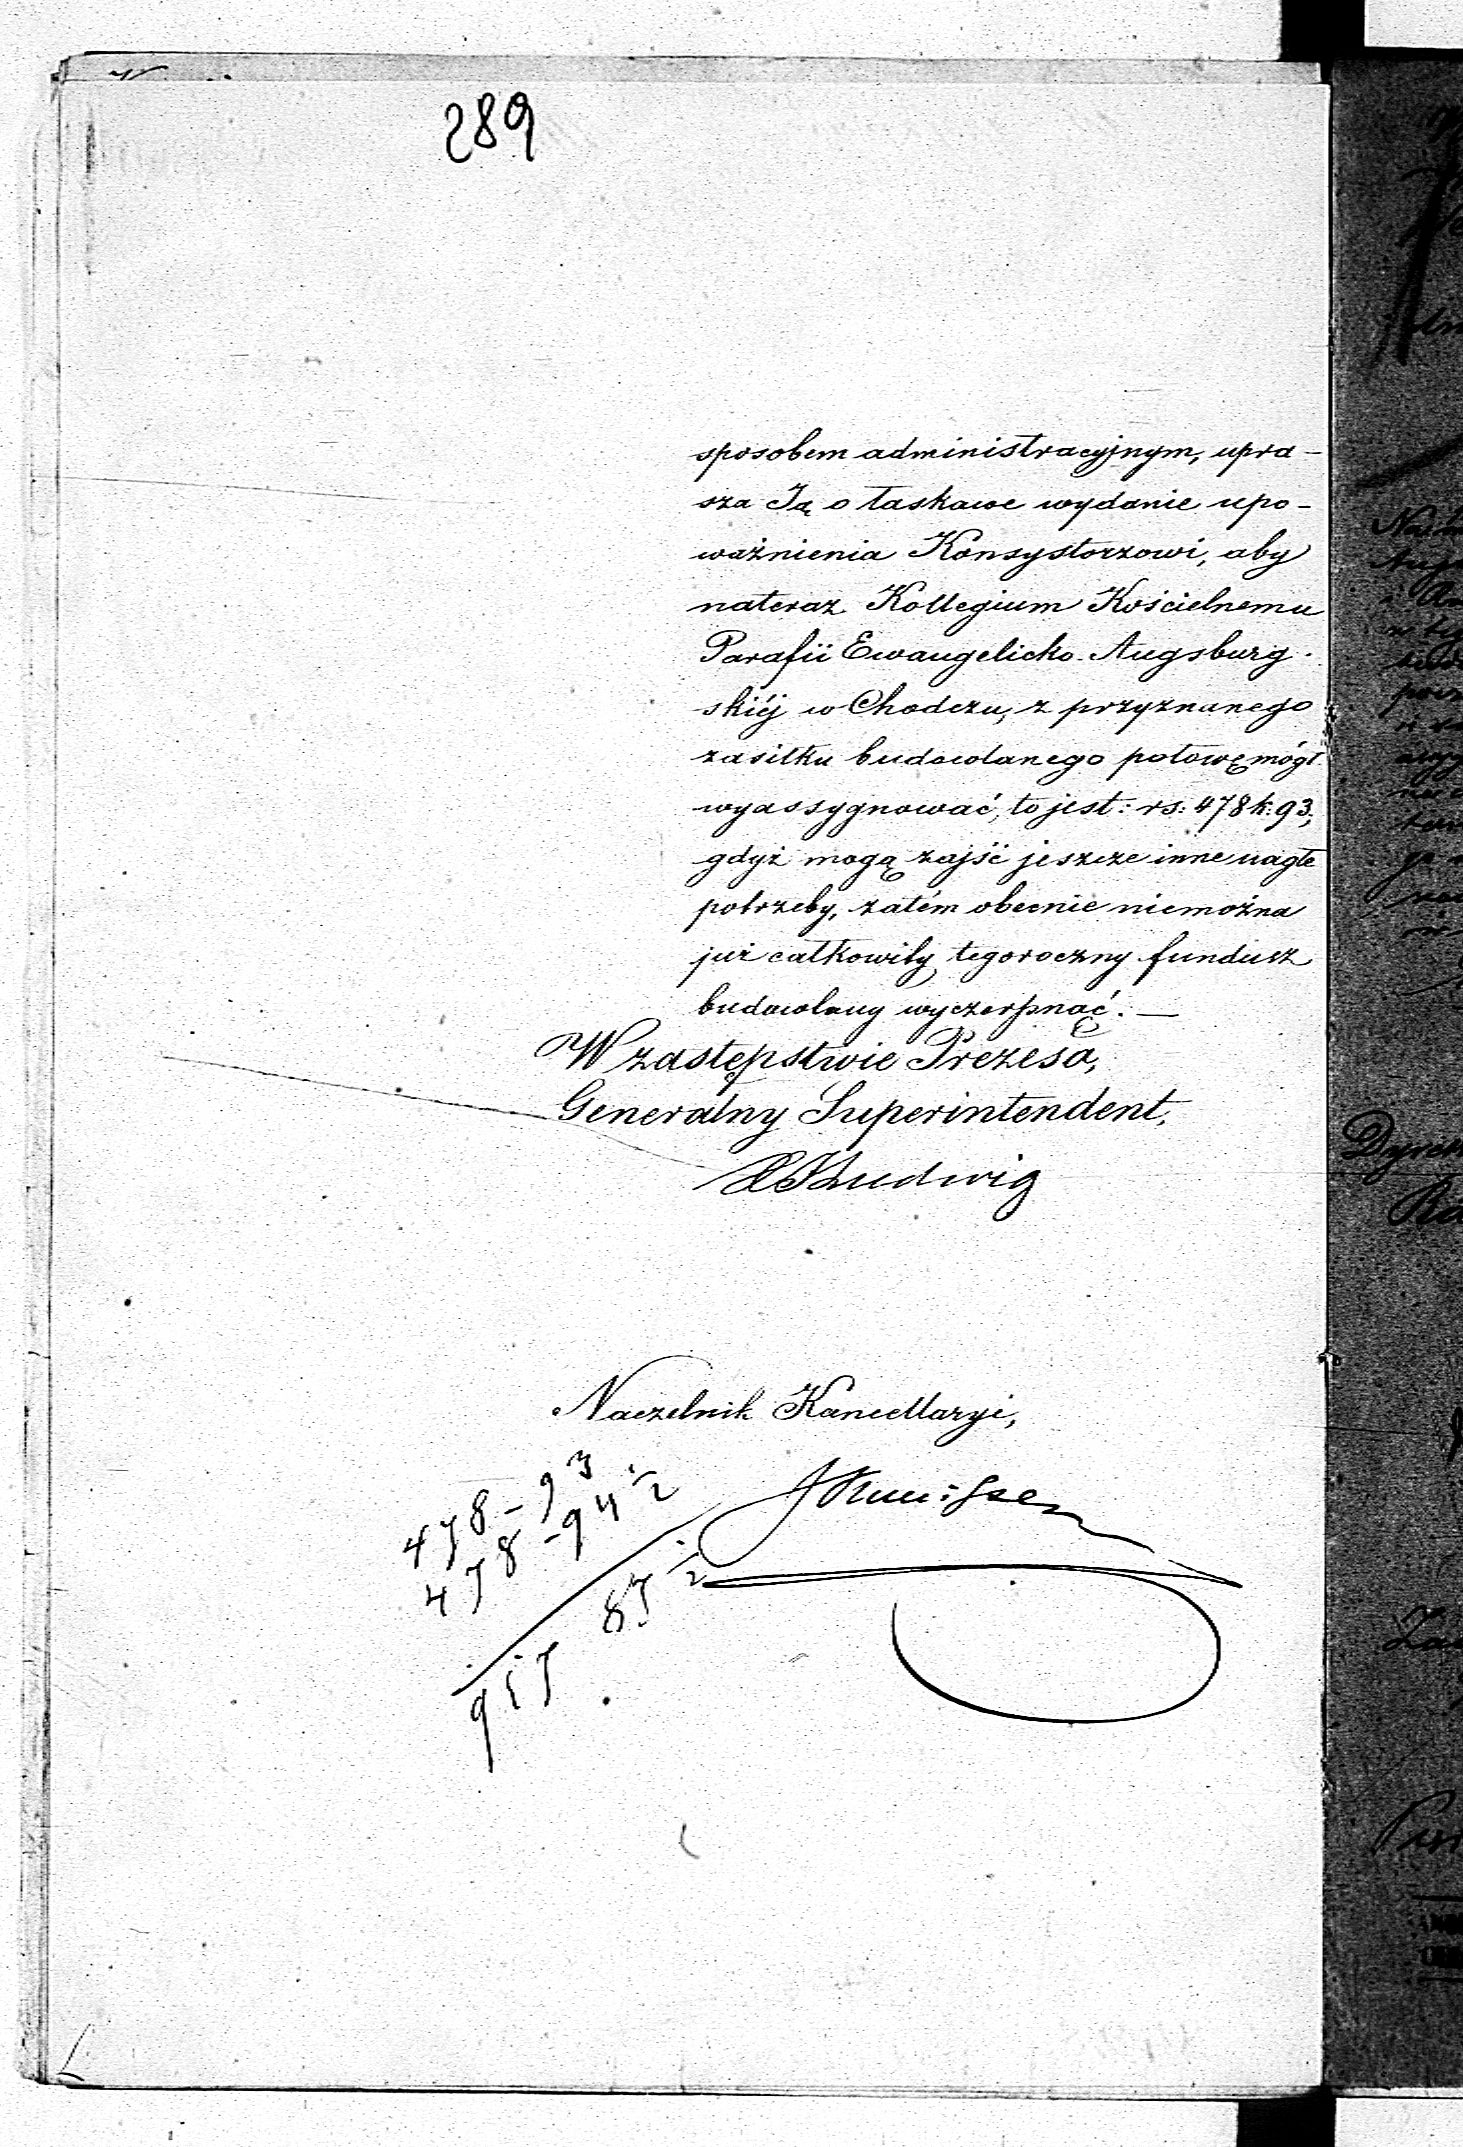 289
sposobem administracyjnym, upra-
sza Ją o łaskawe wydanie upo-
ważnienia Konsystorzowi, aby
nateraz Kollegium Kościelnemu
Parafii Ewangelicko-Augsburg-
skiéj w Chodczu, z przyznanego
zasiłku budowlanego połowę mógł
wyassygnować, to jest: rs: 478 k: 93,
gdyż mogą zajść jeszcze inne nagłe
potrzeby, zatém obecnie niemożna
już całkowity tegoroczny fundusz
budowlany wyczerpnąć. —
W zastępstwie Prezesa,
Generalny Superintendent,
Ludwig
Naczelnik Kancellaryi,
478-93
478-94 1/2
957 87 1/2